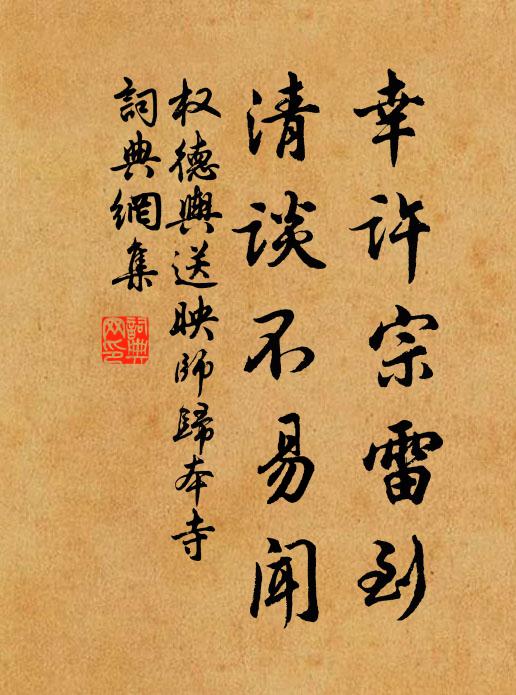 幸许宗雷到
清谈不易闻
权德舆送映师归本寺
詞典網集
詞典网印